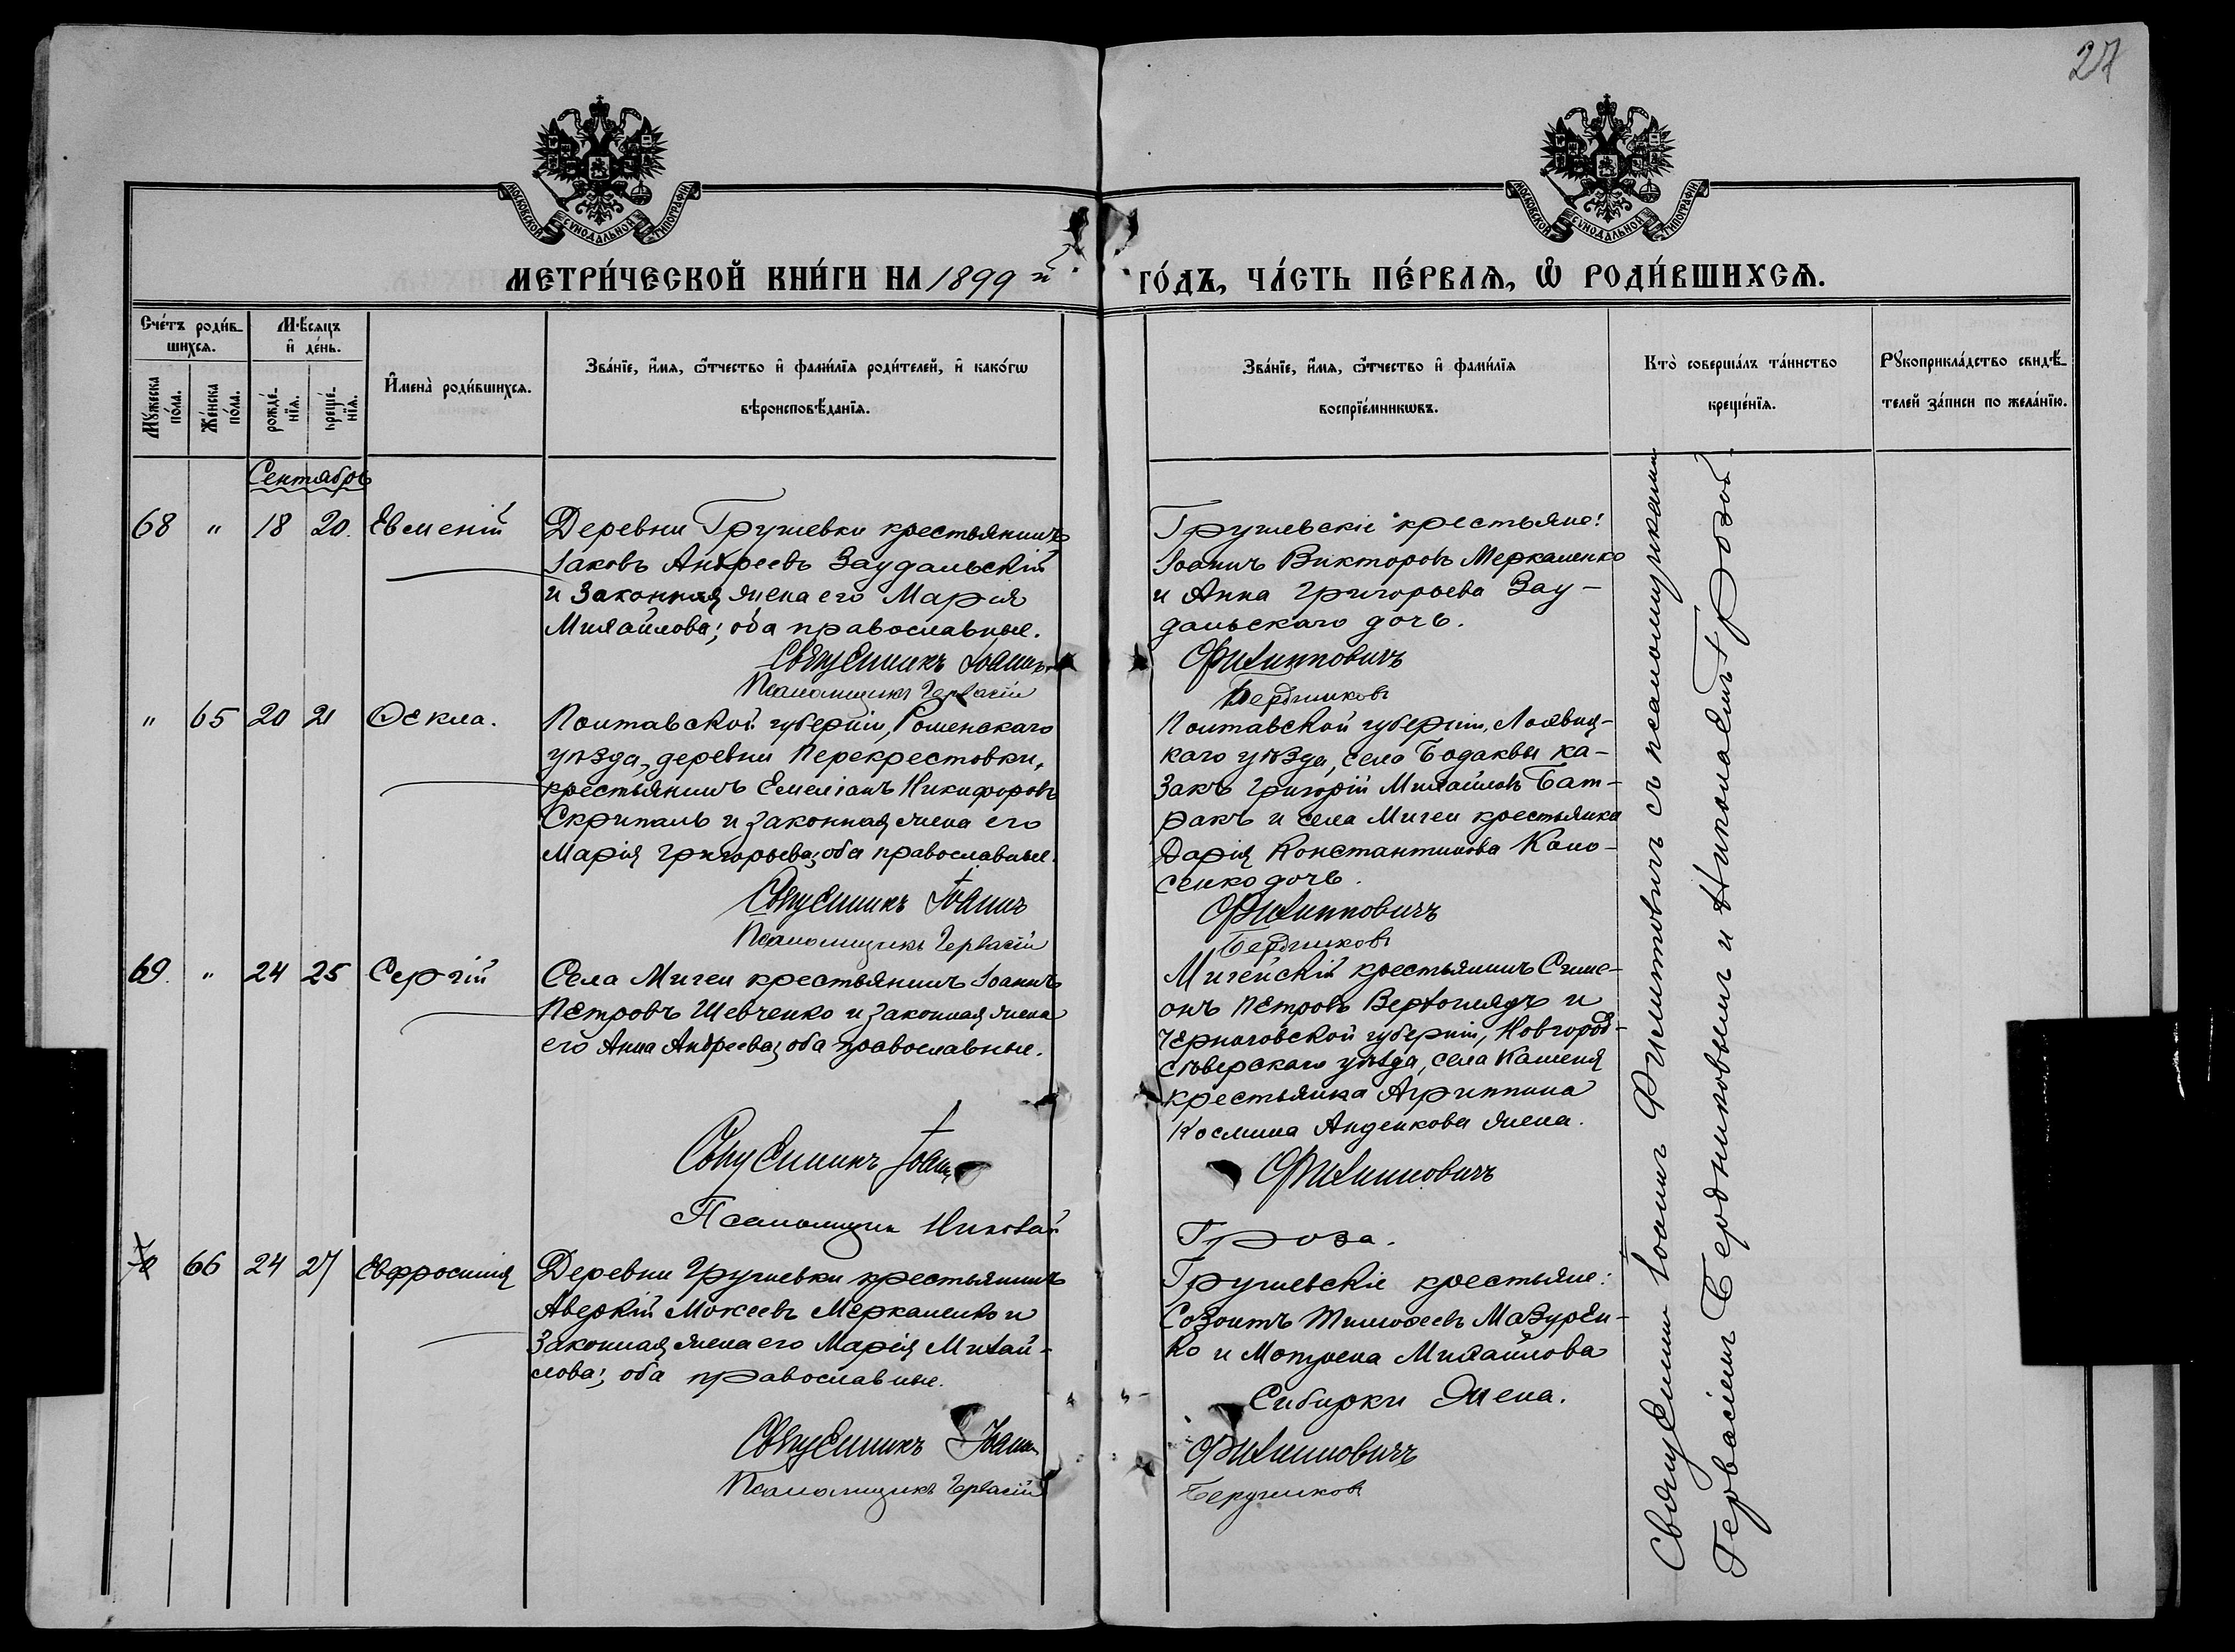 27
МОСКОВСКОЙ СѴНОДАЛЬНОЙ ТИПОГРАФІИ
МОСКОВСКОЙ СѴНОДАЛЬНОЙ ТИПОГРАФІИ
МЕТРИ́ЧЕСКОЙ КНИ́ГИ НА 1899 й ГО́ДЪ, ЧА́СТЬ ПЕ́РВАѦ, Ѿ РОДИ́ВШИХСѦ.
Сче́тъ роди́в-
шихсѧ.
Мѣ́сѧцъ
и҆ де́нь.
Мꙋ́жеска
по́ла.
Же́нска
по́ла.
рожде́-
нїѧ.
креще́-
нїѧ.
И҆мена̀ роди́вшихсѧ.
Зва́нїе, и҆́мѧ, ѻ҆́тчество и҆ фами́лїѧ роди́телей, и҆ како́гѡ
вѣроисповѣ́данїѧ.
Зва́нїе, и҆́мѧ, ѻ҆́тчество и҆ фами́лїѧ
воспрїе́мникѡвъ.
Кто̀ соверша́лъ та́инство
креще́нїѧ.
Рꙋкоприкла́дство свидѣ́-
телей за́писи по жела́нїю.
Сентябрь
68 " 18 20. Евменій
Деревни Грушевки крестьянинъ
Іаковъ Андреевъ Заудальскій
и законная жена его Марія
Михайлова; оба православные.
Священникъ Іоаннъ
Псаломщикъ Гервасій
Грушевскіе крестьяне:
Іоаннъ Викторовъ Меркаленко
и Анна Григорьева Зау-
дальскаго дочь.
Филипповичъ
Бердниковъ
" 65 20 21 Ѳекла.
Полтавской губерніи, Роменскаго
уѣзда, деревни Перекрестовки,
крестьянинъ Емеліанъ Никифоровъ
Скрипаль и законная жена его
Марія Григорьева; оба православные.
Священникъ Іоаннъ
Псаломщикъ Гервасій
Полтавской губерніи, Лохвиц-
каго уѣзда, села Бодаквы ка-
закъ Григорій Михайловъ Бат-
ракъ и села Мигеи крестьянка
Дарія Константинова Коло-
сенко дочь.
Филипповичъ
Бердниковъ
69. " 24 25 Сергій
Села Мигеи крестьянинъ Іоаннъ
Петровъ Шевченко и законная жена
его Анна Андреева; оба православные.
Священникъ Іоаннъ
Псаломщикъ Николай
Мигейскій крестьянинъ Симе-
онъ Петровъ Вертоглядъ и
Черниговской губерніи, Новгород-
сѣверскаго уѣзда, села Каменя
крестьянка Агриппина
Космина Анденкова жена.
Филипповичъ
Гроза.
70 66 24 27 Евфросинія
Деревни Грушевки крестьянинъ
Аверкій Мокеевъ Меркаленко и
законная жена его Марія Михай-
лова; оба православные.
Священникъ Іоаннъ
Псаломщикъ Гервасій
Грушевскіе крестьяне:
Созонтъ Тимоѳеевъ Мазурен-
ко и Матрена Михайлова
Сибирки жена.
Филипповичъ
Бердниковъ
Священникъ Іоаннъ Филипповичъ съ псаломщиками
Гервасіемъ Бердниковымъ и Николаемъ Грозой.